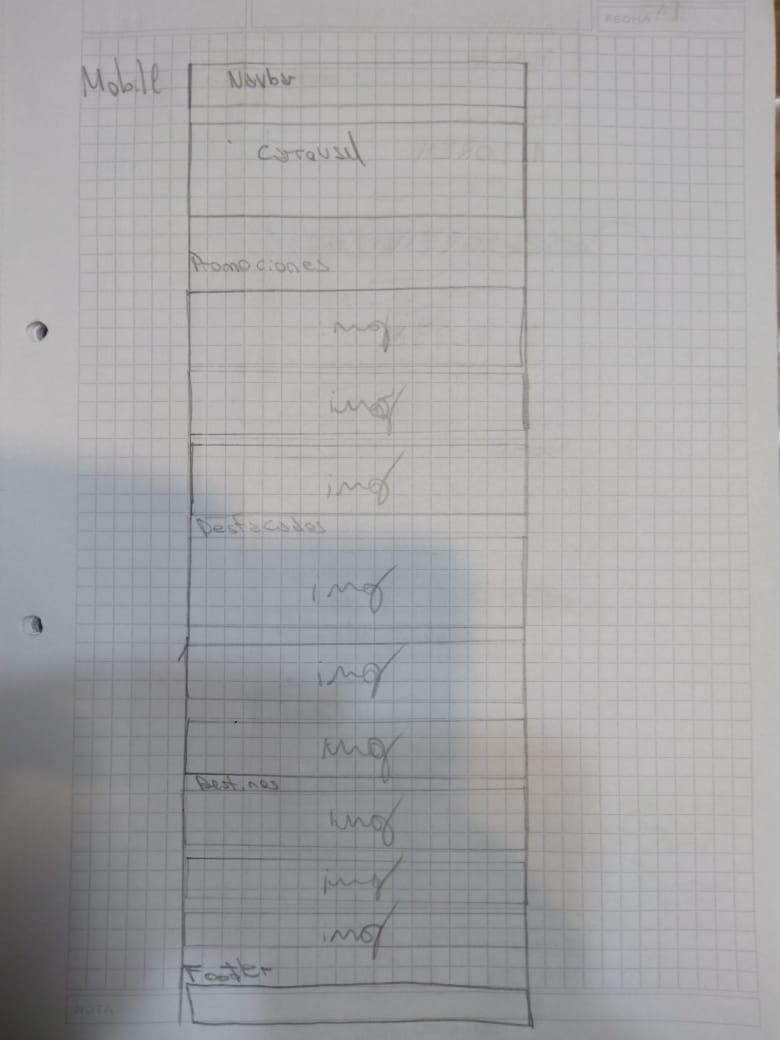 FECHA
Mobile
Navbar
Carousel
Promociones
img
img
img
Destacados
img
img
img
Destinos
img
img
img
Footer
NOTA